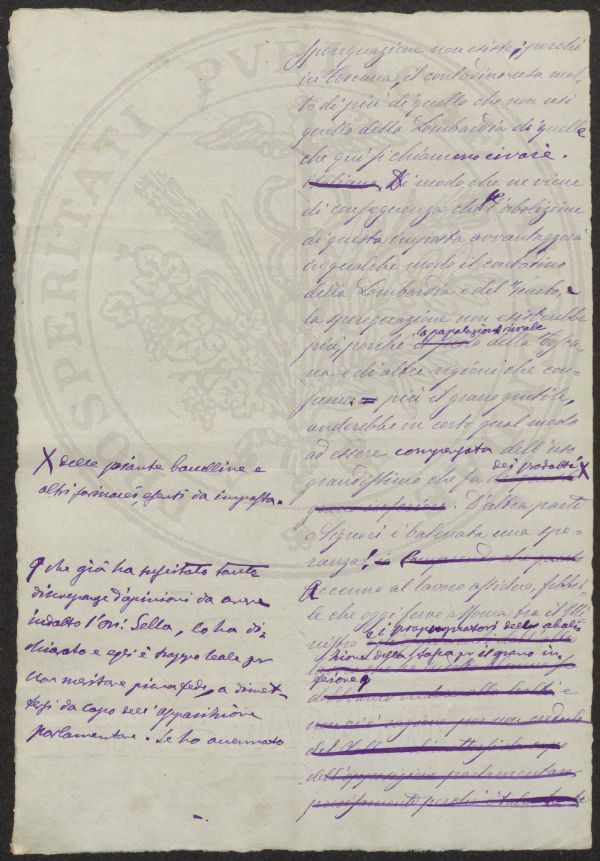 PROSPERITATI PUBL
sperequazione non esiste; perchè
in Toscana, il contadino usa mol-
to di più di quello che non usi
quello della Lombardia di quelle
che qui si chiameno civaie.
italiane Di modo che ne viene
di conseguenza che se l'abolizione
di questa imposta avvantaggerà
in qualche modo il contadino
della Lombardia e del Veneto, e
la sperequazione non esisterebbe
più, perchè
la popolazione rurale
della Tosca-
na e di altre regioni che con-
suma più il grano gentile,
anderebbe in certo qual modo
ad essere compensata dell'uso
grandissimo che fa dei prodotti X
D'altra parte
o Signori è balenata una spe-
ranza!
Accenno al lavoro assiduo, febbri-
le che oggi ferve attorno tra il Mi-
nistro e i propugnatori della aboli-
zione della tassa pr il grano in-
feriore φ
e
non vi è ragione per non creder
dell'opposizione parlamentare
X delle piante baccelline e
altri farinacei, esenti da imposta.
φ che già ha suscitato tante
discrepanze d'opinioni da avere
indotto l'on: Sella, lo ha di-
chiarato e egli è troppo leale per
non meritare piena fede, a dimet-
tersi da capo dell'opposizione
parlamentare. Se ho accennato